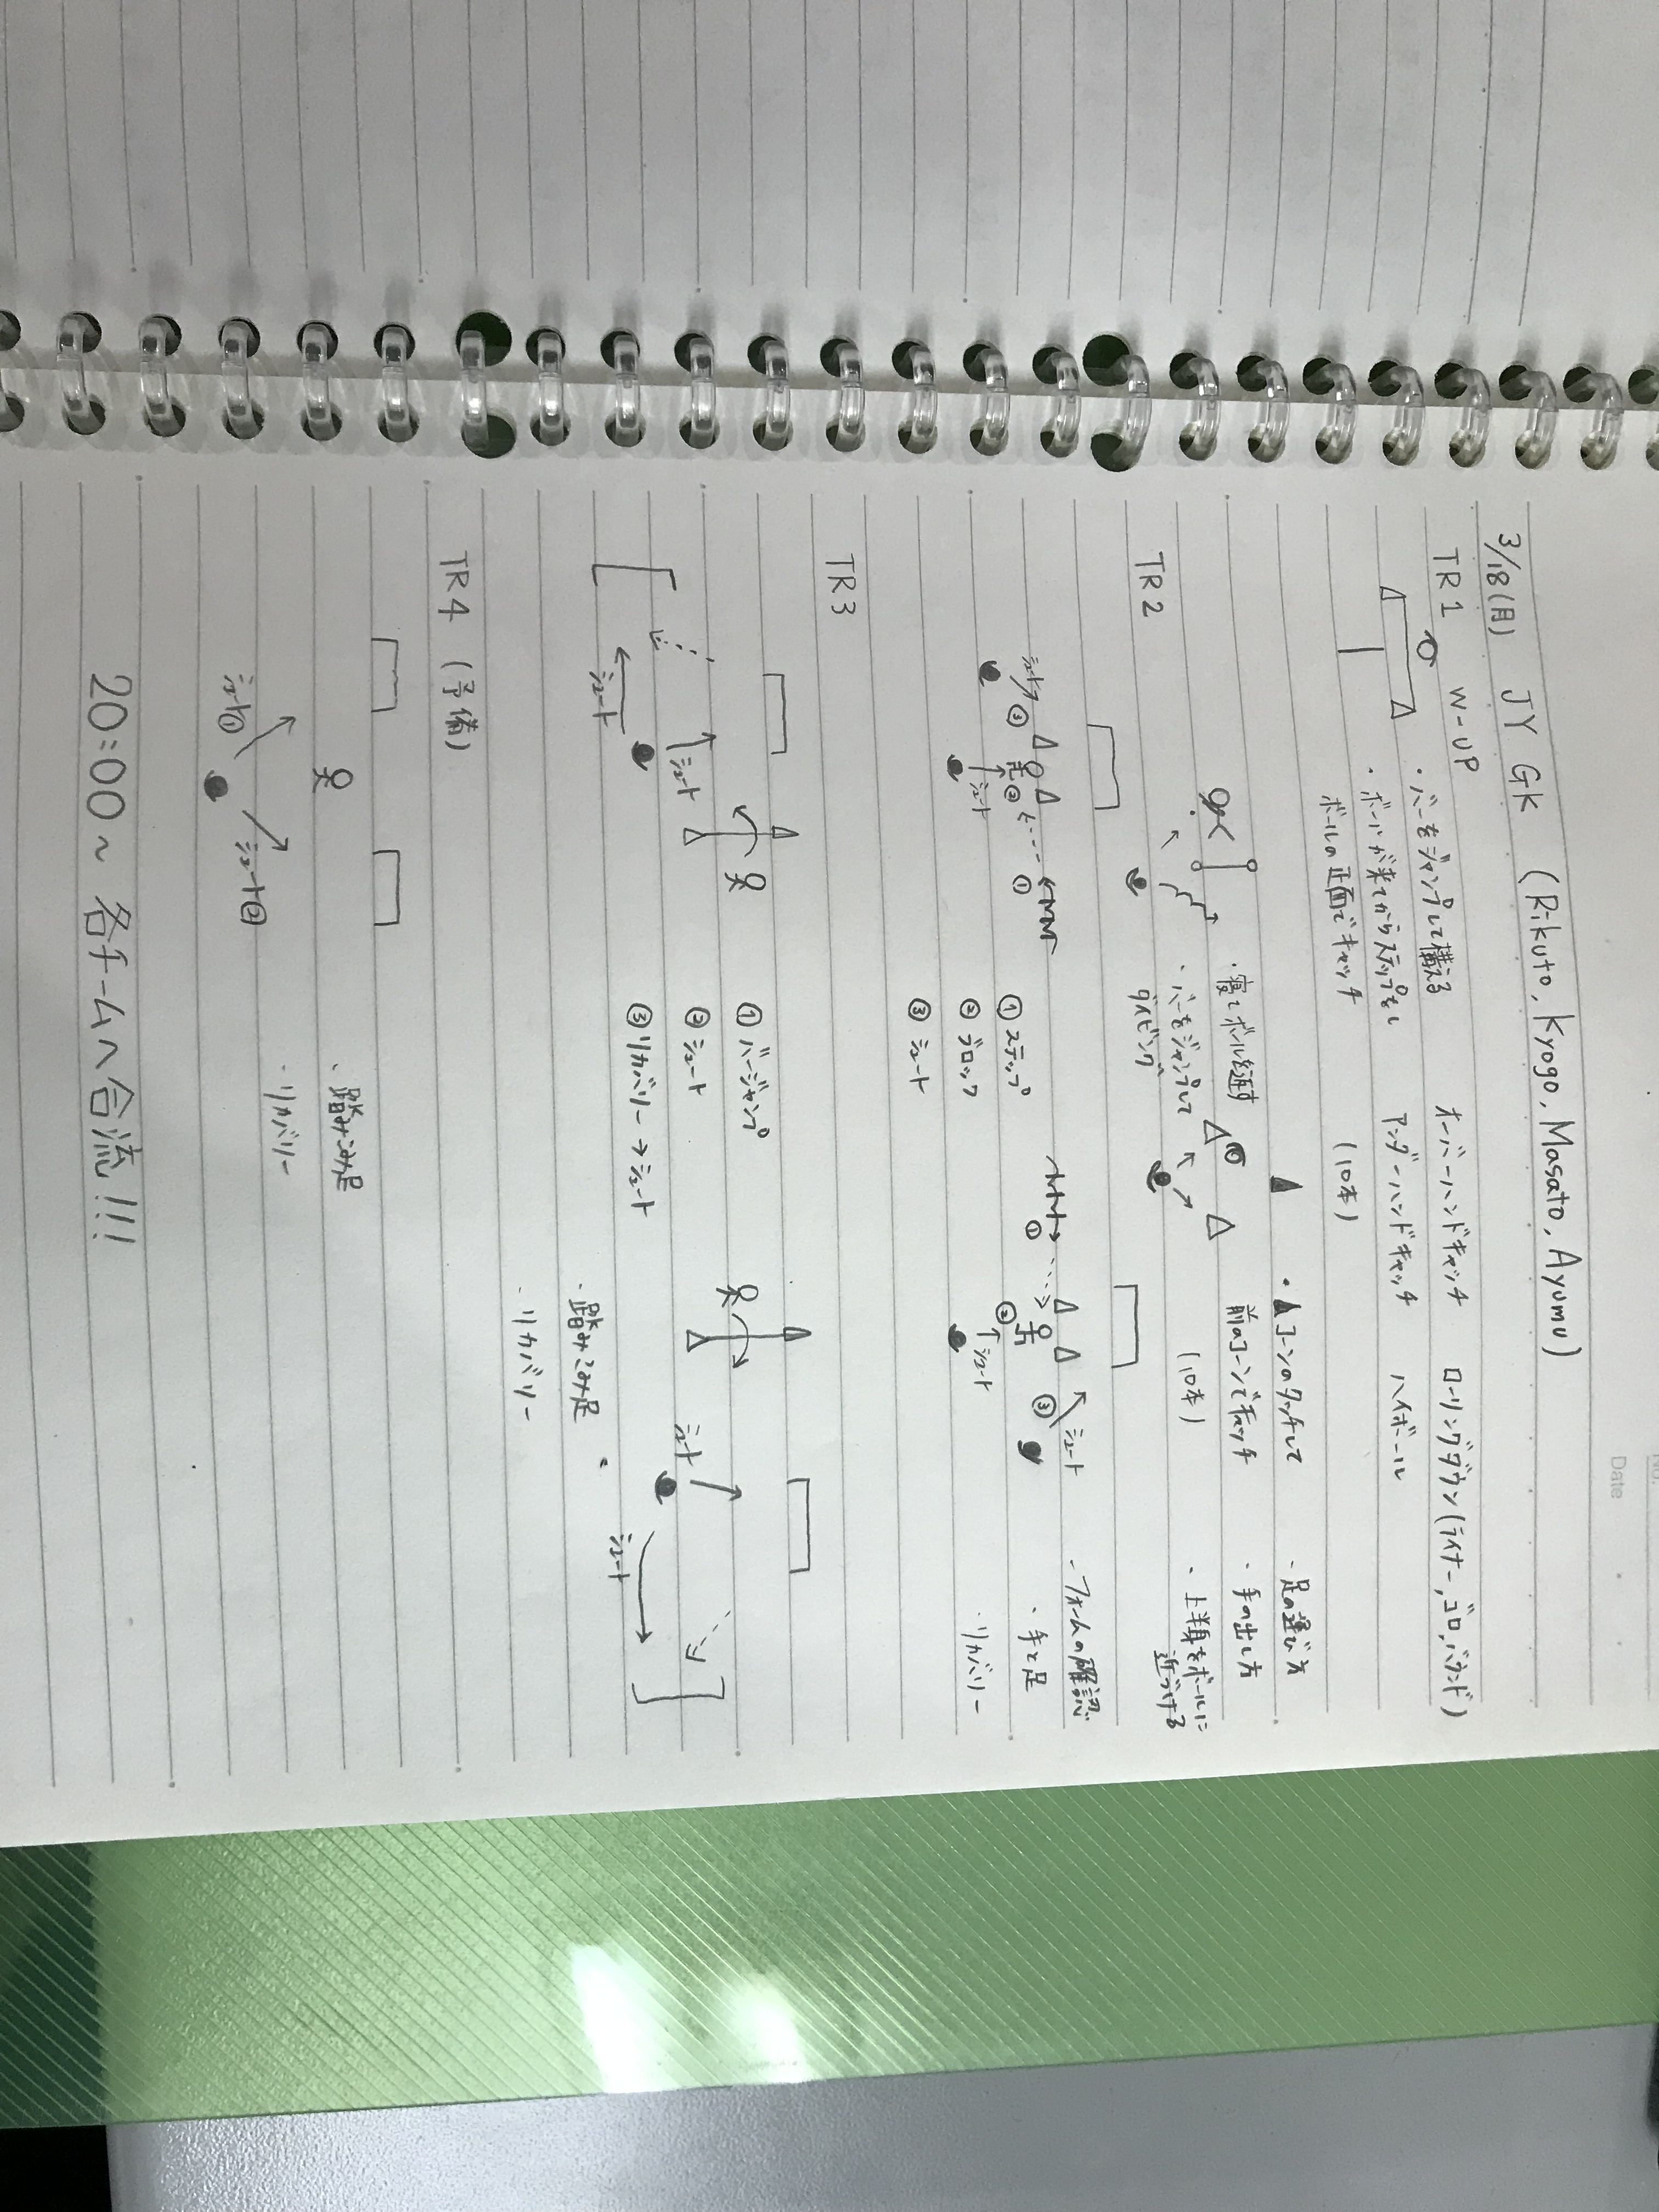 No.
Date
3/18(月) JY GK (Rikuto, Kyogo, Masato, Ayumu)
TR1 W-UP
・バーをジャンプして構える
・ボールが来てからステップをし
ボールの正面でキャッチ
オーバーハンドキャッチ
アンダーハンドキャッチ
(10本)
ローリングダウン(ライナー,ゴロ,バウンド)
ハイボール
・寝てボールを返す
・バーをジャンプして
ダイビング
・コーンのタッチして
前のコーンでキャッチ
(10本)
・足の運び方
・手の出し方
・上半身をボールに
近づける
TR2
シュート ③
② シュート
①
①ステップ
②ブロック
③シュート
①
② シュート
③ シュート
・フォームの確認
・手と足
・リカバリー
TR3
シュート
シュート
①バージャンプ
②シュート
③リカバリー→シュート
シュート
シュート
・踏みこみ足
・リカバリー
TR4 (予備)
シュート①
シュート②
・踏みこみ足
・リカバリー
20:00~ 各チームへ合流!!!